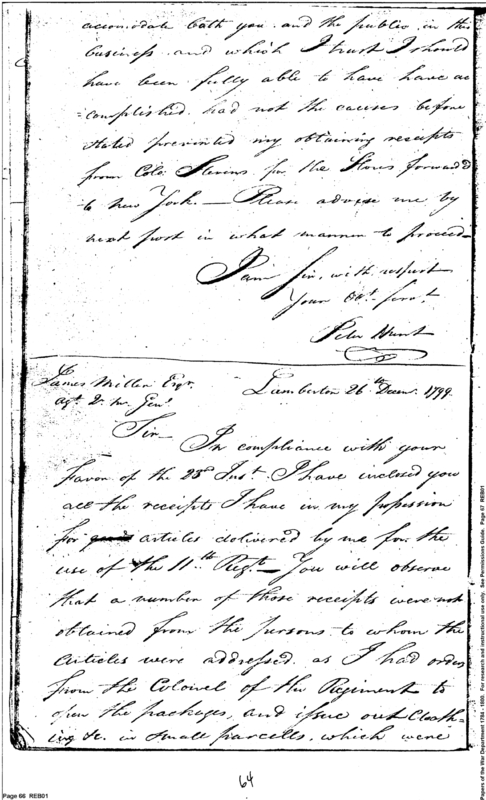 accomodate both you and the public in this
business and which I trust I should
have been fully able to have have ac
=complished had not the causes before
stated prevented my obtaining receipts
from Colo Stevens for the Stores forward'd
to New York. — Please advise me by
next post in what manner to proceed—
I am Sir, with respect
Your Obt. Servt.
Peter Hunt
James Miller Esqr.
agt Qr. Mr. Genl.
Lamberton 26th Decm. 1799.
Sir—
In compliance with your
favor of the 23d Inst. I have inclosed you
all the receipts I have in my possession
for articles delivered by me for the
use of the 11th Regt— You will observe
that a number of those receipts were not
obtained from the persons to whom the
Articles were addressed. as I had orders
from the Colonel of the Regiment to
open the packages, and issue out Cloath-
ing &c. in small parcells, which were
64
Page 66 REB01
Papers of the War Department 1784 - 1800. For research and instructional use only. See Permissions Guide. Page 67 REB01